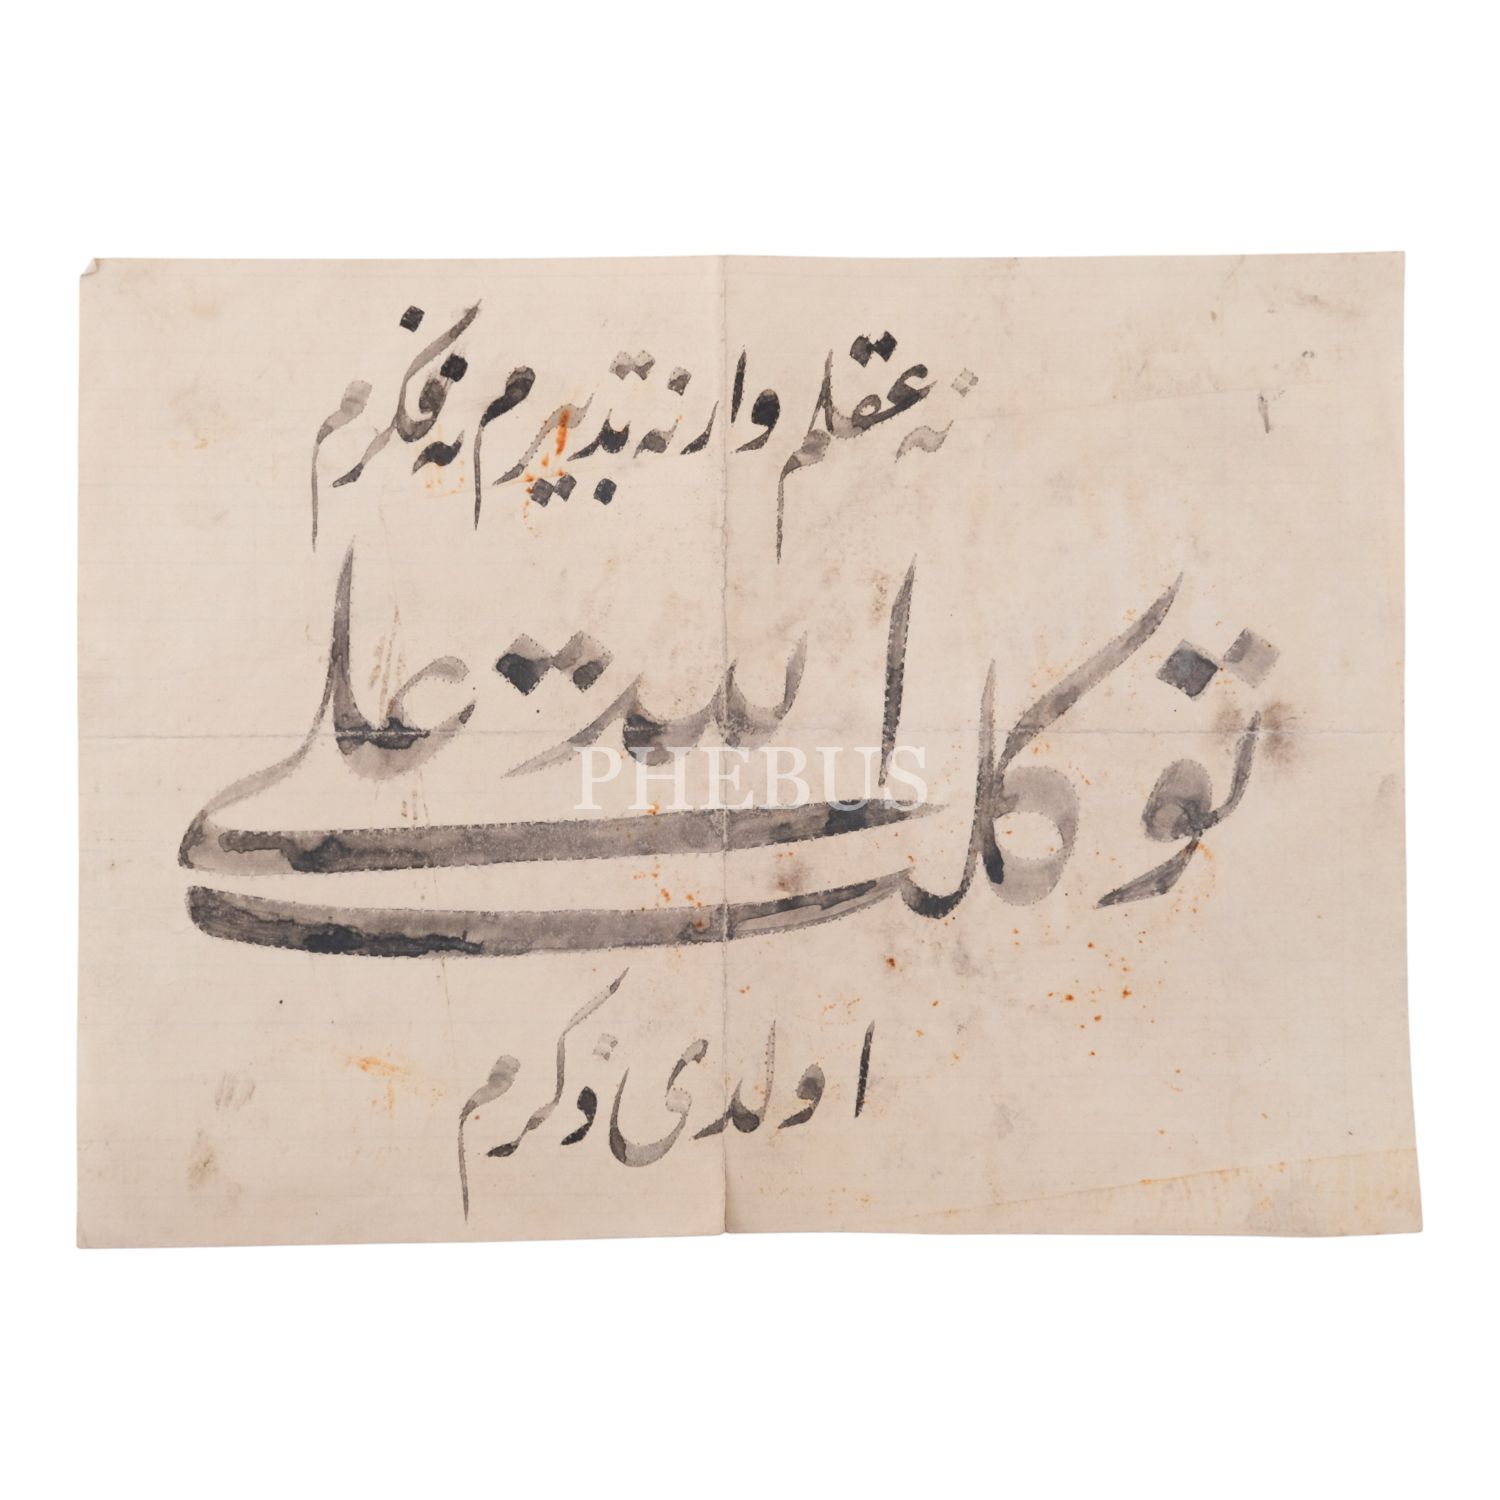 نه عقلم وار نه تدبیرم نه فکرم
توکلت علی الله
PHEBUS
اولدی ذکرم